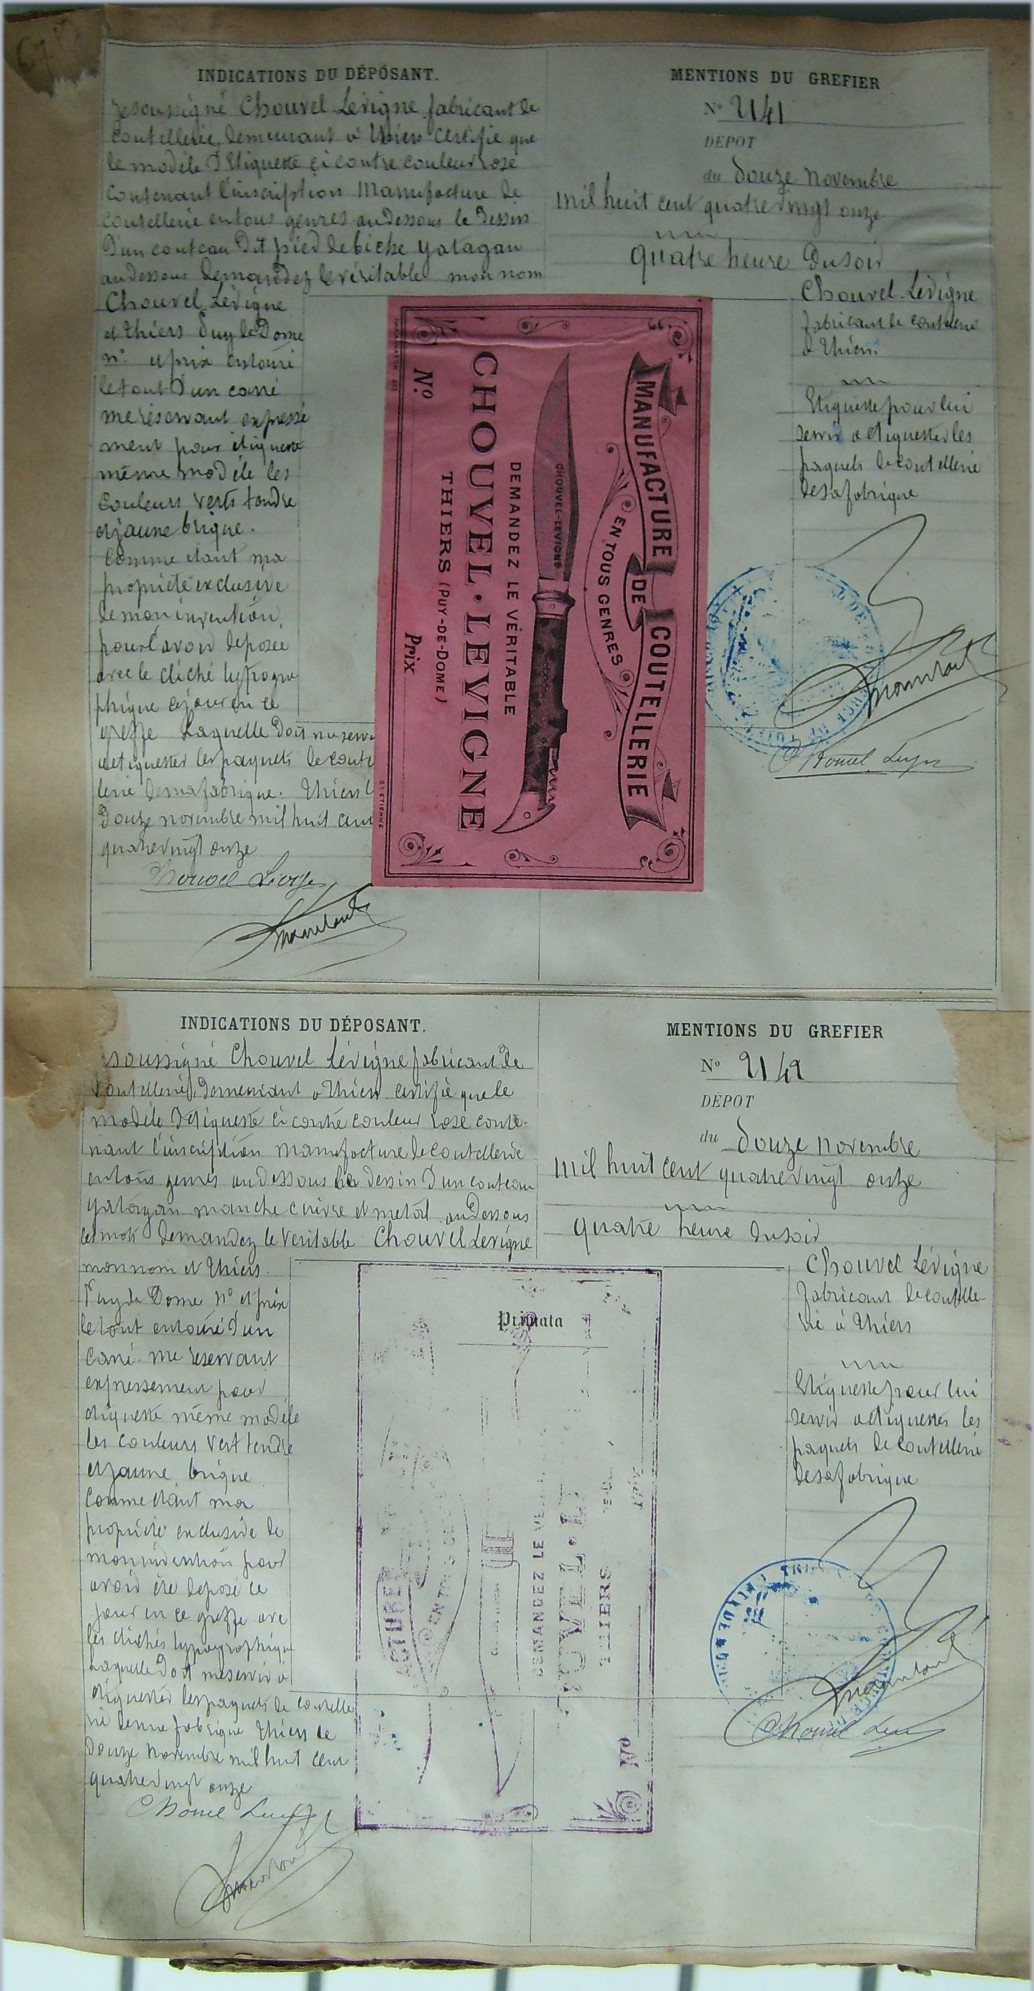 INDICATIONS DU DÉPOSANT.
Je soussigné Chouvel Levigne fabricant de
coutellerie, demeurant a Thiers certifie que
le modèle d'Etiquette ci contre couleur rose
contenant l'inscription Manufacture de
coutellerie en tous genres au dessous le dessin
d'un couteau Dit pied de biche yatagan
au dessous demandez le véritable mon nom
Chouvel Lévigne
et Thiers Puy de Dome
n° et prix entouré
le tout d'un carré
me réservant expressé
ment pour étiquette
même modèle les
couleurs verts tendre
et jaune brique.
Comme étant ma
propriété exclusive
de mon invention,
pour l'avoir déposée
avec le cliché typogra
phique ce jour en ce
greffe Laquelle Doit me servir
a etiquetter les paquets de coute
lerie de ma fabrique. Thiers le
Douze novembre mil huit cent
quatrevingt onze
Chouvel Levigne
MENTIONS DU GREFIER
N° 2141
DEPOT
du Douze Novembre
Mil huit cent quatre vingt onze
Quatre heure Du soir
Chouvel Lévigne
fabricant de coutellerie
a Thiers.
Etiquette pour lui
servir a etiquetter les
paquets de coutellerie
de sa fabrique
Chouvel Levigne
MANUFACTURE DE COUTELLERIE
EN TOUS GENRES
CHOUVEL-LEVIGNE
DEMANDEZ LE VÉRITABLE
CHOUVEL·LEVIGNE
THIERS (PUY-DE-DOME)
N.o
Prix
ST ETIENNE
INDICATIONS DU DÉPOSANT.
soussigné Chouvel Lévigne fabricant de
Coutellerie, Demeurant a Thiers certifie que le
modèle D'Etiquette ci contre couleur rose conte-
nant l'inscription manufacture de coutellerie
en tous genres au dessous le dessin D'un couteau
yatagan manche cuivre et métal au dessous
les mots Demandez le Veritable Chouvel Levigne
mon nom et Thiers
Puy de Dome N° et prix
le tout entouré D'un
carré me reservant
expressement pour
étiquette même modèle
les couleurs Vert tendre
et jaune brique
Comme étant ma
propriété exclusive de
mon invention pour
avoir été déposé ce
jour en ce greffe avec
les clichés typographique
Laquelle Doit me servir à
étiquetter les paquets de coutelle
rie de ma fabrique Thiers le
Douze Novembre mil huit cent
quatrevingt onze
Chouvel Levigne
MENTIONS DU GREFIER
N° 2142
DEPOT
du Douze Novembre
Mil huit cent quatrevingt onze
Quatre heure Du soir
Chouvel Lévigne
fabricant de coutelle-
rie a Thiers
Etiquette pour lui
servir a etiquetter les
paquets de coutellerie
de sa fabrique
Chouvel Levigne
Primata
CTURE
EN TOUS GE
DEMANDEZ LE VÉ
OUVEL·L
THIERS
Prix
No